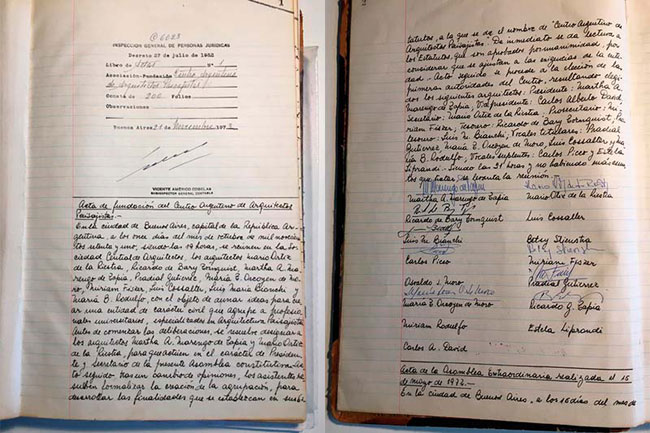 1
6023
INSPECCION GENERAL DE PERSONAS JURIDICAS
Decreto 27 de julio de 1932
Libro de Actas N° 1
Asociación-Fundación Centro Argentino
de Arquitectos Paisajistas
Consta de 200 Folios
Observaciones
Buenos Aires 28 de Noviembre 197
VICENTE AMERICO
INSPECTOR GENERAL CONTABLE
Acta de fundación del Centro Argentino de Arquitectos
Paisajistas.-
En la ciudad de Buenos Aires, capital de la República Ar-
gentina, a los once días del mes de octubre de mil novecien-
tos setenta y uno, siendo las 19 horas, se reunen en la So-
ciedad Central de Arquitectos, los arquitectos Mario Ortiz
de la Riestra, Ricardo de Bary Tornquist, Martha A. Ma-
rengo de Tapia, Pradial Gutierrez, María E. Orcoyen de Mo-
ro, Miriam Fszer, Luis Cossaller, Luis María Bianchi y
María B. Rodolfo, con el objeto de aunar ideas para cre-
ar una entidad de carácter civil que agrupe a profesio-
nales universitarios, especialidades en Arquitectura Paisajista
Antes de comenzar las deliberaciones, se resuelve designar a
los arquitectos Martha A. Marengo de Tapia y Mario Ortiz
de la Riestra, para que actúen en el carácter de Presiden-
te y Secretario de la presente Asamblea constitutiva. Ac-
to seguido, tras un cambio de opiniones, los asistentes re-
suelven formalizar la creación de la agrupación, para
desarrollar las finalidades que se establezcan en sus Es-
2
tatutos, a lo que se da el nombre de "Centro Argentino de
Arquitectos Paisajistas". De inmediato se da lectura a
los Estatutos, que son aprobados por unanimidad, por
considerar que se ajustan a las exigencias de la enti-
dad.- Acto seguido se procede a la elección de las
primeras autoridades del Centro, resultando elegi-
dos los siguientes arquitectos: Presidente: Martha A.
Marengo de Tapia, Vicepresidente: Carlos Alberto David,
Secretario: Mario Ortiz de la Riestra; Prosecretario: Mi-
riam Fszer, Tesorero: Ricardo de Bary Tornquist, Pro-
tesorero: Luis M. Bianchi; Vocales titulares: Pradial
Gutierrez, María E. Orcoyen de Moro, Luis Cossaller y Ma-
ría B. Rodolfo, Vocales suplentes: Carlos Pico y Estela
Liprandi.- Siendo las 21 horas y no habiendo más asun-
tos que tratar, se levanta la reunión.
Martha A. Marengo de Tapia Mario Ortiz de la Riestra
Ricardo de Bary Tornquist Luis Cossaller
Luis M. Bianchi Betsy
Carlos Pico Miriam Fszer
Osvaldo L. Moro Pradial Gutierrez
María E. Orcoyen de Moro Ricardo J. Tapia
Miriam Rodolfo Estela Liprandi
Carlos A. David
Acta de la Asamblea Extraordinaria realizada el 15
de mayo de 1972.-
En la Ciudad de Buenos Aires, a los 15 días del mes de